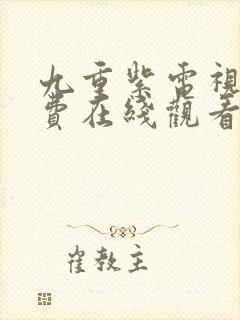 九重紫電視
費在綫觀看
崔教主